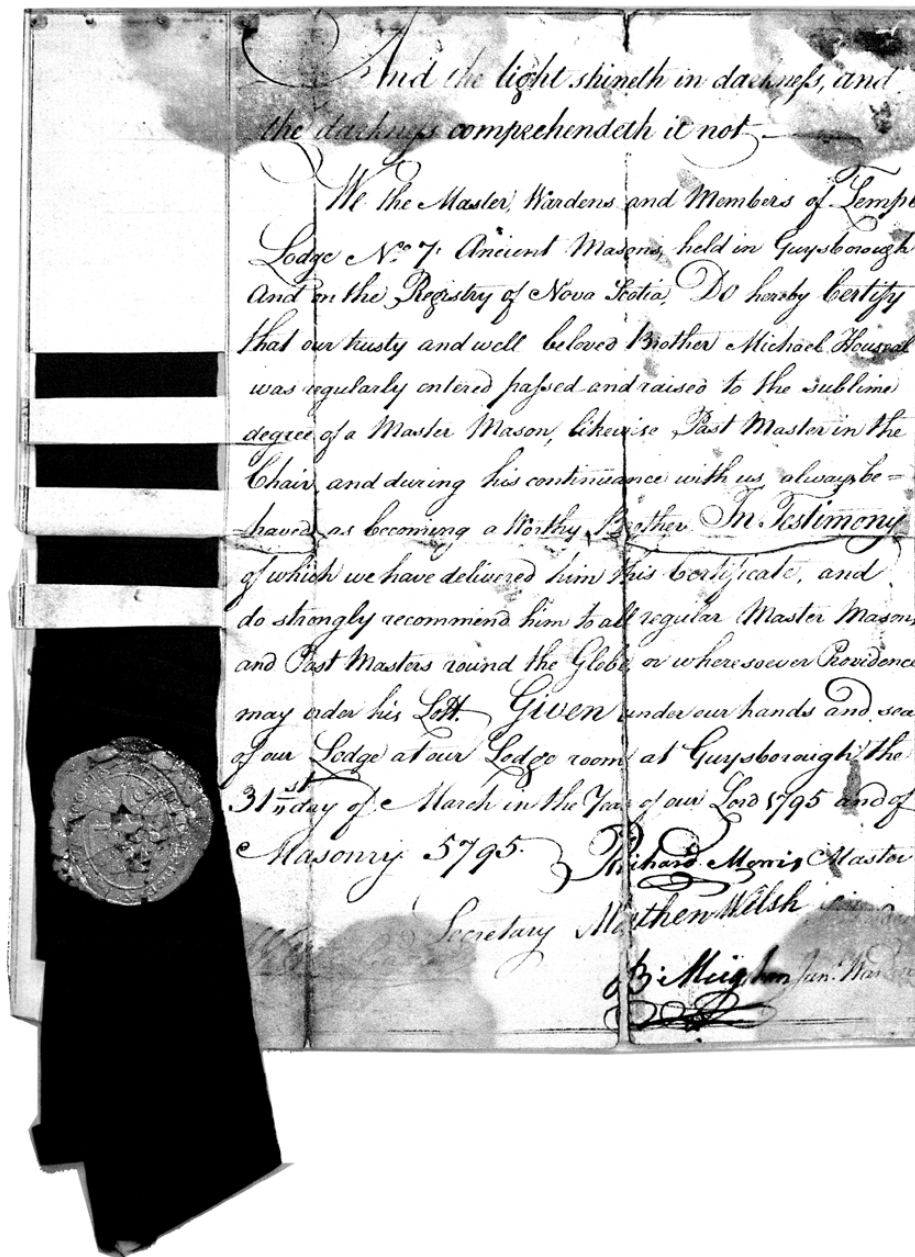 And the light shineth in darkness, and
the darkness comprehendeth it not
We the Master, Wardens, and Members of Temple
Lodge No. 7. Ancient Masons, held in Guysborough
And on the Registry of Nova Scotia, Do hereby Certify
that our trusty and well beloved Brother Michael Houseal
was regularly entered passed and raised to the sublime
degree of a Master Mason, likewise Past Master in the
Chair, and during his continuance with us, always be=
haved as becoming a Worthy Brother In Testimony
of which we have delivered him this Certificate, and
do strongly recommend him to all regular Master Masons
and Past Masters round the Globe, or wheresoever Providence
may order his Lott. Given under our hands and sea
of our Lodge at our Lodge room at Guysborough the
31st day of March in the Year of our Lord 1795 and of
Masonry 5795.
Richard Morris Master
Secretary Matthew Welsh
B. Meighan Jun. Warden